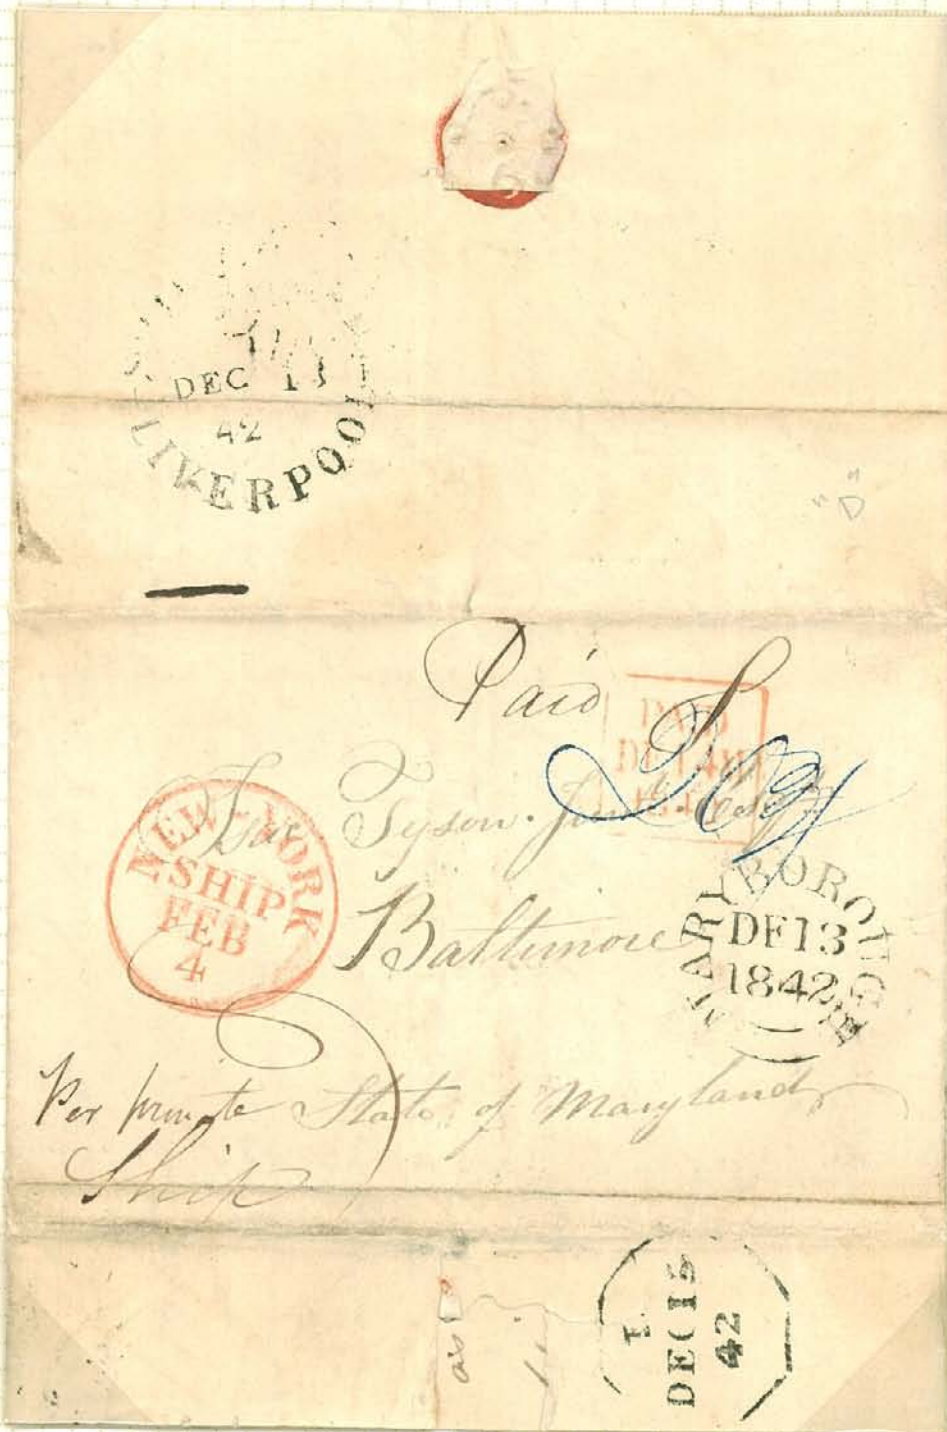 DEC 13
42
LIVERPOOL
"D"
Paid
PAID
Tyson.
NEW-YORK
SHIP
FEB
4
Baltimore
MARYBOROUGH
DE 13
1842
Per private State of Maryland
Ship
DE 15
42